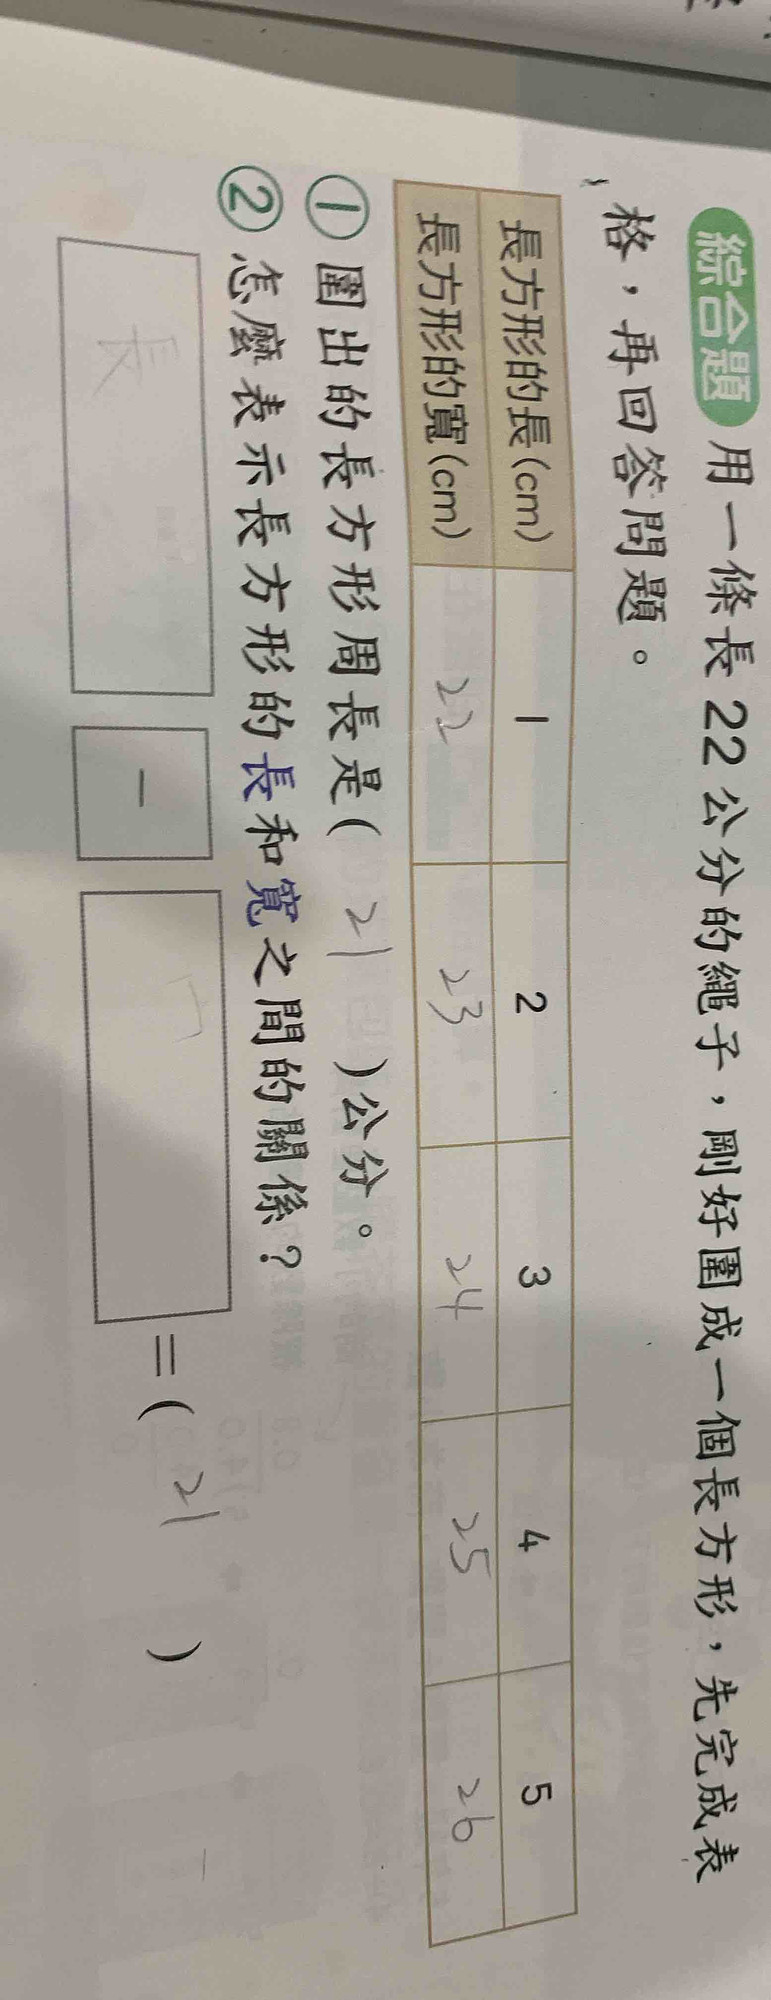 綜合題 用一條長22公分的繩子，剛好圍成一個長方形，先完成表
格，再回答問題。
長方形的長(cm) 1 2 3 4 5
長方形的寬(cm) 22 23 24 25 26
① 圍出的長方形周長是( 21 )公分。
② 怎麼表示長方形的長和寬之間的關係？
長 － =( 21 )